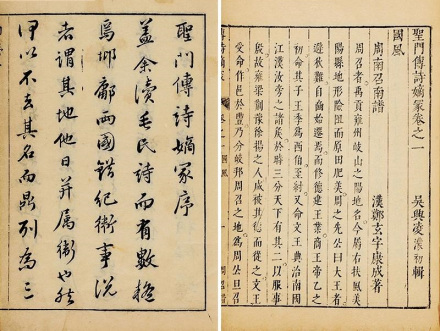 聖門傳詩嫡冢序
蓋余讀毛氏詩而有數
焉邶鄘兩國錯紀衛事說
者謂其地他日并属衛也然
何以不去其名而鼎列為三
聖門傳詩嫡冢卷之一
吳興凌濛初輯
國風
周南召南譜
漢鄭玄字康成著
周召者禹貢雍州岐山之陽地名今屬右扶風美
陽縣地形險阻而原田肥美周之先公曰大王者
避狄難自豳始遷焉而修德建王業商王帝乙之
初命其子王季爲西伯至紂又命文王典治南國
江漢汝旁之諸矦於時三分天下有其二以服事
殷故雍梁荆豫徐揚之人咸被其德而從之文王
受命作邑於豐乃分岐邦周召之地爲周公旦召